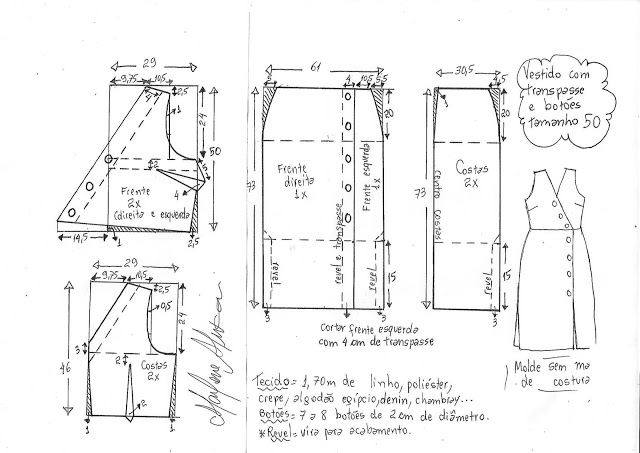 29
9,75
10,5
2,5
4
1
24
50
2
3
4
Frente
2x
(direita e esquerda
14,5
1
2,5
29
9,75
10,5
2,5
0,5
24
3
2
46
Costas
2x
2
1
1
61
5
4
10,5
5
20
73
Frente
direita
1x
Frente esquerda
1x
revel
revel e transpasse
revel
15
3
3
cortar frente esquerda
com 4 cm de transpasse
30,5
4,5
1
20
73
Costas
2x
centro costas
revel
15
3
Vestido com
transpasse
e botões
tamanho 50
Molde sem ma
de costura
Tecido = 1,70m de linho, poliéster,
crepe, algodão egípcio, denin, chambray...
Botões = 7 a 8 botões de 2 cm de diâmetro.
*Revel = vira para acabamento.